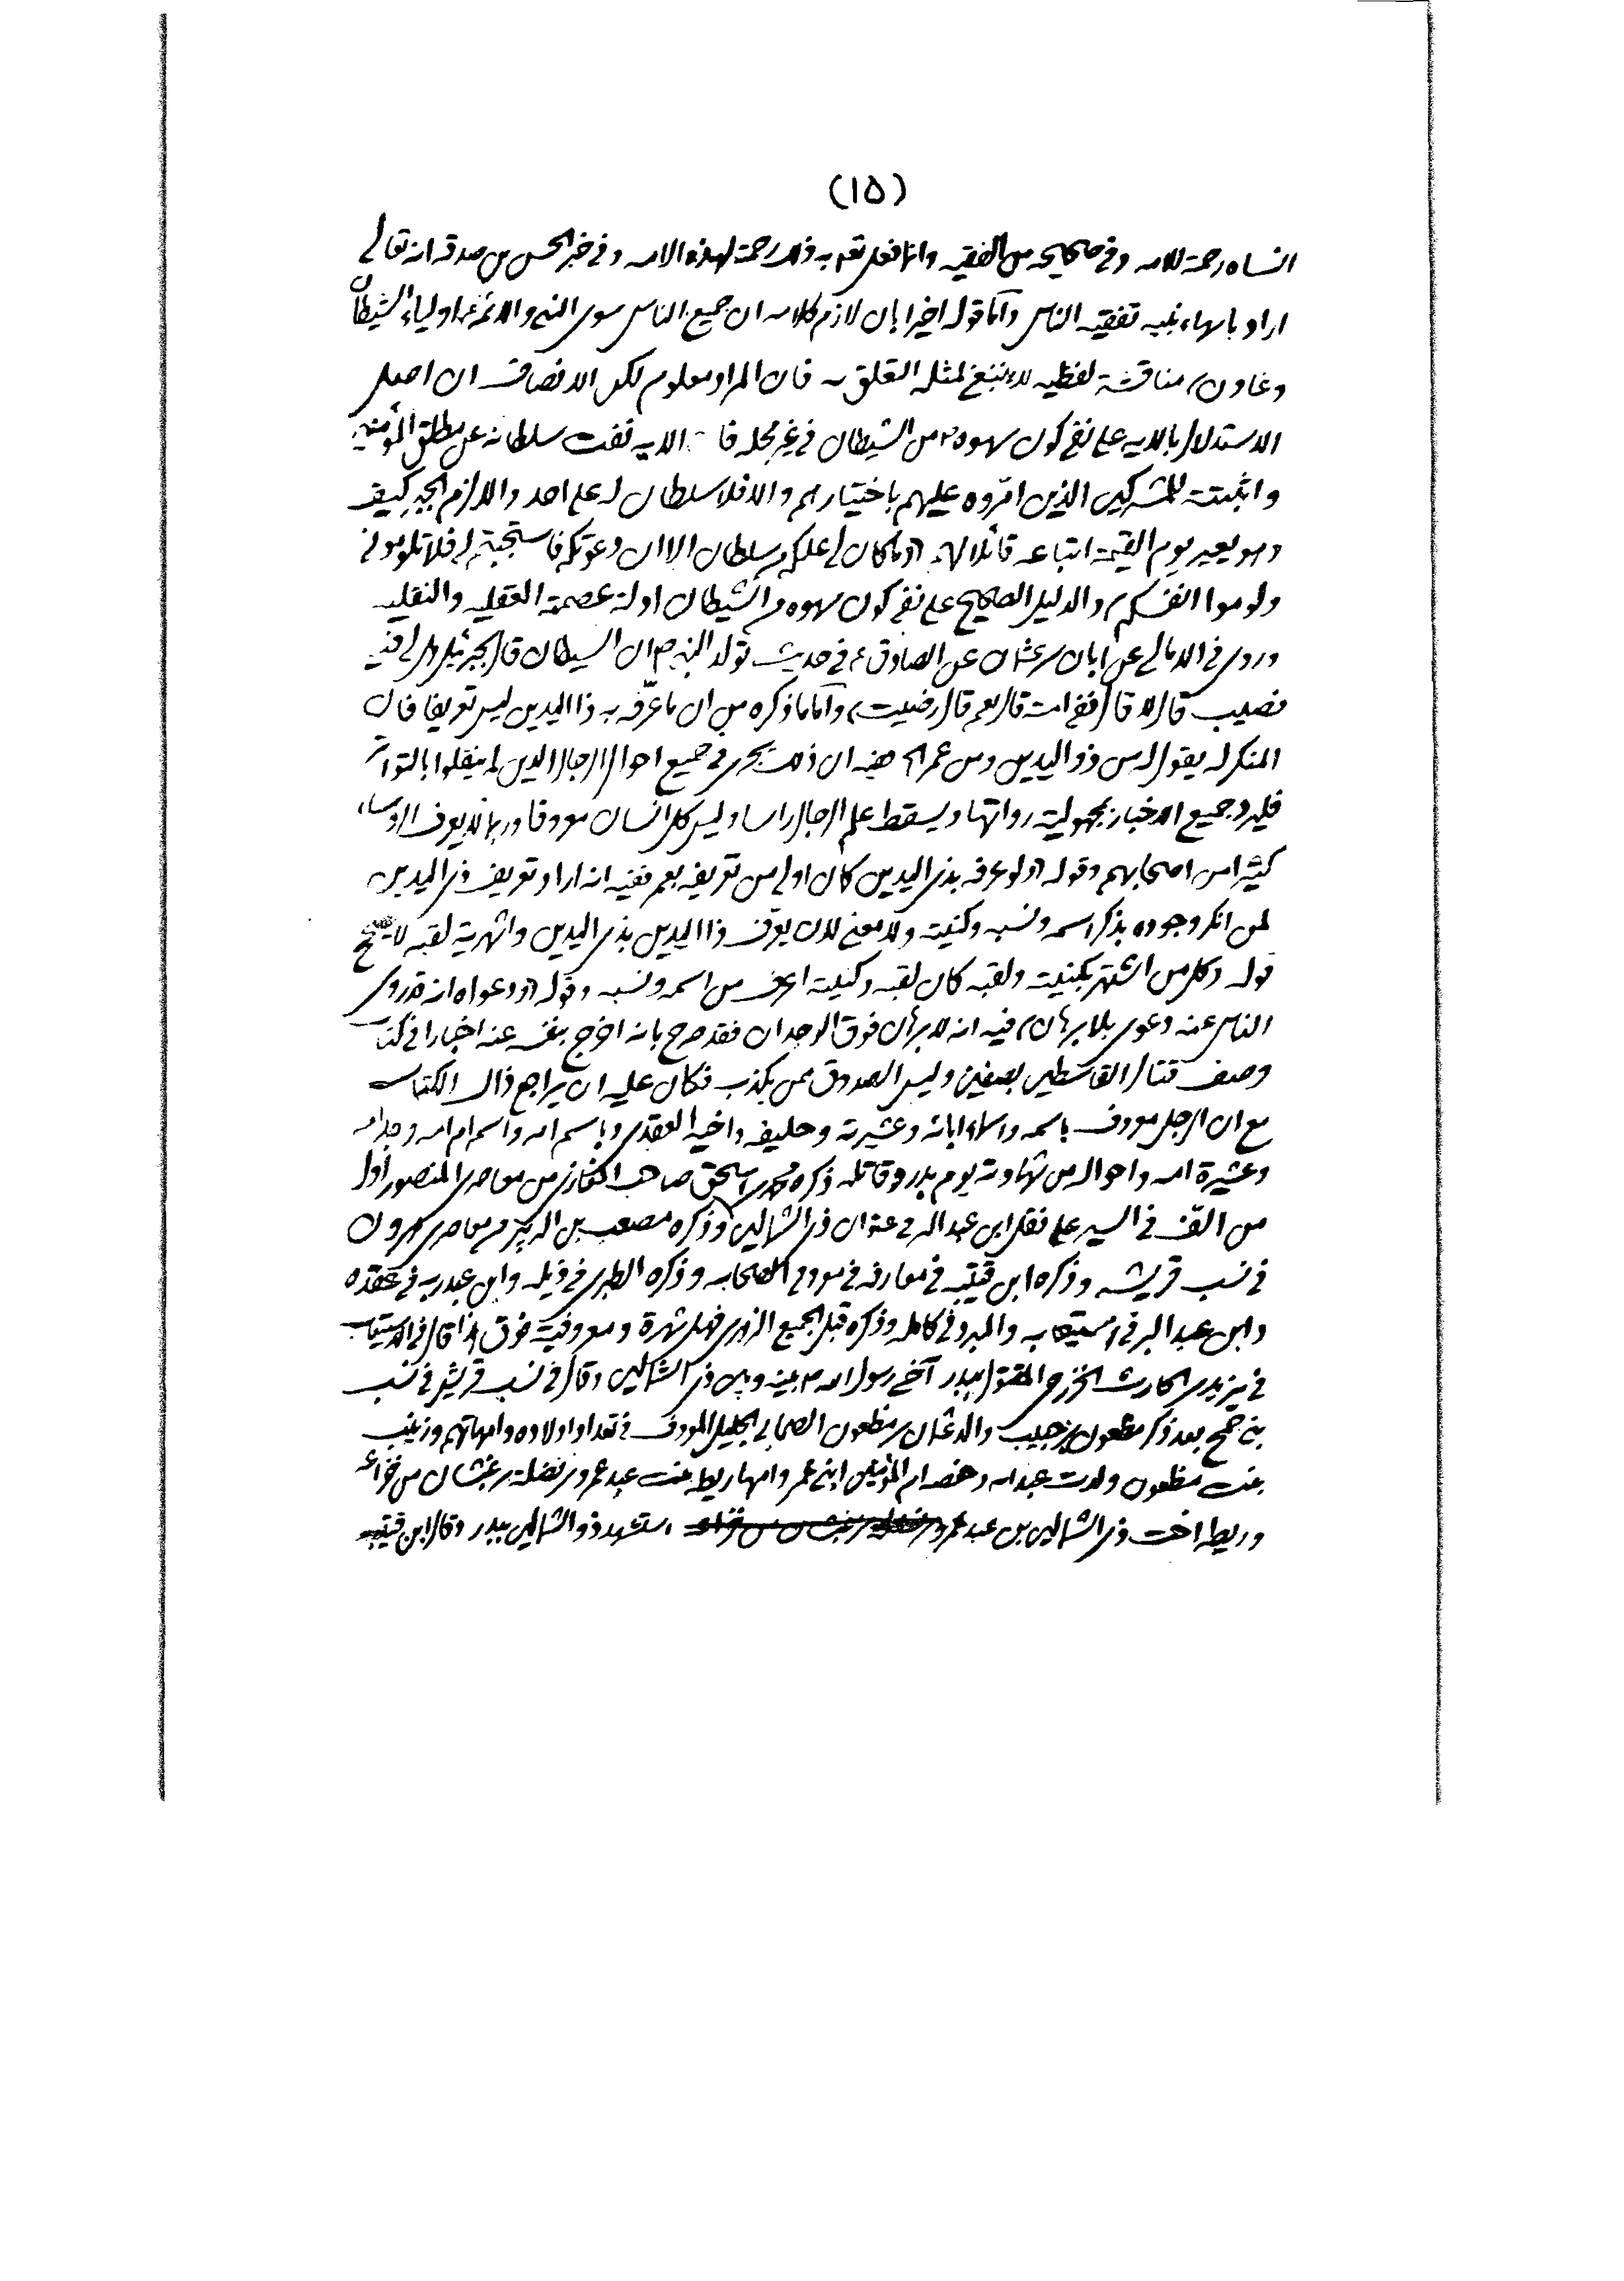 (١٥)
انساه رحمة للامه وفي صحيحه من الفقيه وانما فعل تعم به ذلك رحمة لهذه الامه وفي خبر الحسن بن صدقه انه تعالى
اراد باسهاء نبيه تفقيه الناس وأما قوله اخيرا بان لازم كلامه ان جميع الناس سوى النبي والائمة ع اولياء الشيطان
وغاوون) مناقشة لفظيه لا ينبغي لمثله التعلق به فان المراد معلوم لكن الانصاف ان اصل
الاستدلال بالايه على نفي كون سهوه من الشيطان في غير محله فان الايه نفت سلطانه عن مطلق المؤمنين
واثبتته للمشركين الذين امّروه عليهم باختيارهم والا فلا سلطان له على احد والا لزم الجبر كيف
وهو يعير يوم القيمة اتباعه قائلا لهم (وما كان لي عليكم من سلطان الا ان دعوتكم فاستجبتم لي فلا تلوموني
ولوموا انفسكم) والدليل الصحيح على نفي كون سهوه من الشيطان ادلة عصمته العقليه والنقليه
وروى في الامالي عن ابان بن عثمان عن الصادق ع في حديث تولد النبي ص ان الشيطان قال لجبرئيل هل لي فيه
نصيب قال لا قال ففي امته قال نعم قال رضيت) وأما ما ذكره من ان ما عرّفه به ذا اليدين ليس تعريفا فان
المنكر له يقول له من ذو اليدين ومن عمير الخ ففيه ان ذلك يجرى في جميع احوال الرجال الذين لم ينقلوا بالتواتر
فليرد جميع الاخبار بمجهولية رواتها ويسقط علم الرجال راسا وليس كل انسان معروفا وربما لا يعرف الرؤساء
كثيرا من اصحابهم وقوله (ولو عرفه بذى اليدين كان اولى من تعريفه بعمير ففيه انه اراد تعريف ذى اليدين
لمن انكر وجوده بذكر اسمه ونسبه وكنيته ولا معنى لان يعرّف ذا اليدين بذى اليدين واشهرية لقبه لا يصحح
قوله وكل من اشتهر بكنيته ولقبه كان لقبه وكنيته اعرف من اسمه ونسبه وقوله (ودعواه انه قد روى
الناس عنه دعوى بلا برهان) فيه انه لا برهان فوق الوجدان فقد صرح بانه اخرج بنفسه عنه اخبارا في كتاب
وصف قتال القاسطين بصفين وليس الصدوق ممن يكذب فكان عليه ان يراجع ذاك الكتاب
مع ان الرجل معروف باسمه واسماء ابائه وعشيرته وحليفه واخيه العقدى وباسم امه واسم ام امه وجدامه
وعشيرة امه واحواله من شهادته يوم بدر وقاتله ذكره محمد بن اسحق صاحب المغازى من معاصرى المنصور اول
من الّف في السير على نقل ابن عبد البر في عنوان ذى الشمالين وذكره مصعب بن الزبير من معاصرى هرون
في نسب قريش وذكره ابن قتيبه في معارفه في معروفي الصحابه وذكره الطبرى في ذيله وابن عبد ربه في عقده
وابن عبد البر في استيعابه والمبرد في كامله وذكره قبل الجميع الزهرى فهل شهرة ومعروفية فوق هذا قال في الاستيعاب
في يزيد بن الحارث الخزرجى المقتول ببدر آخى رسول الله ص بينه وبين ذى الشمالين وقال في نسب قريش في نسب
بني جمح بعد ذكر مظعون بن حبيب والد عثمان بن مظعون الصحابي الجليل المعروف في تعداد اولاده وامهاتهم وزينب
بنت مظعون ولدت عبدالله وحفصه ام المؤمنين ابني عمر وامها ريطه بنت عبد عمرو بن نضلة بن غبشان من خزاعه
وريطه اخت ذى الشمالين بن عبد عمرو استشهد ذو الشمالين ببدر وقال ابن قتيبه